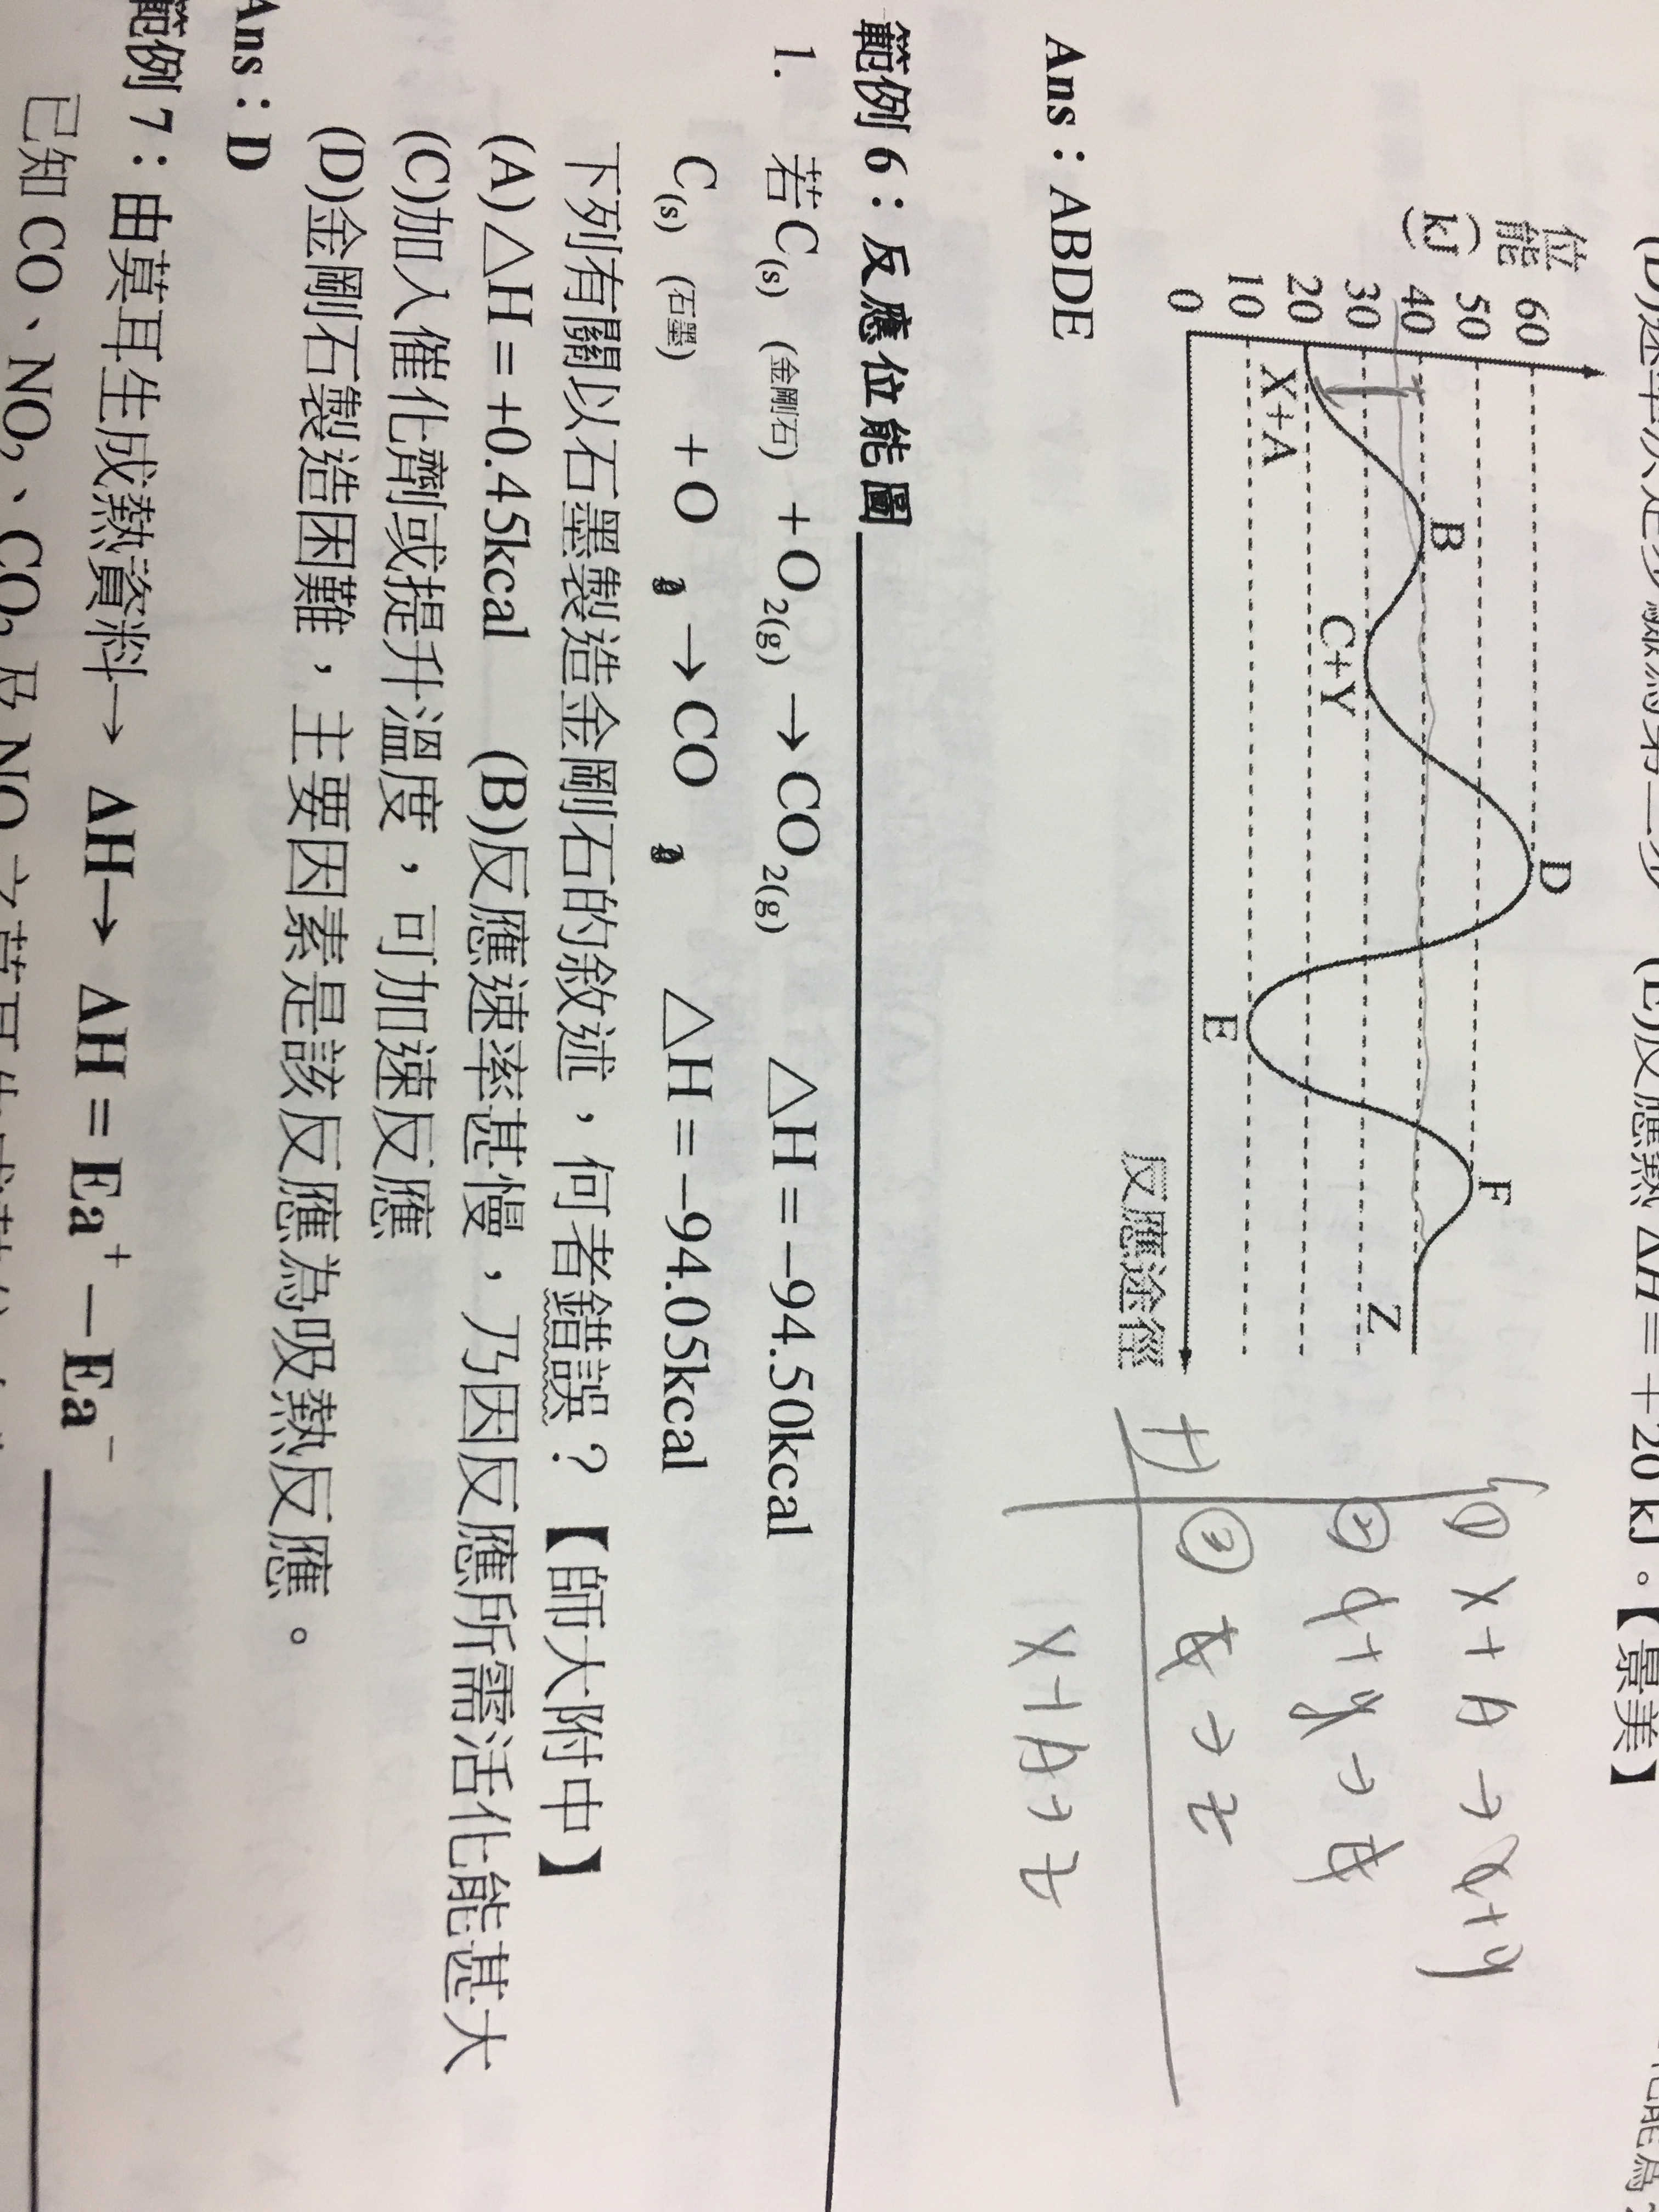 (E)反應熱 ΔH = +20 kJ。【景美】
位能
(kJ)
60
50
40
30
20
10
0
X+A
B
C+Y
D
E
F
Z
反應途徑
① X + A →
② + Y →
+) ③ → Z
X + A → Z
Ans：ABDE
範例 6：反應位能圖
1. 若C(s) (金剛石) +O2(g) →CO2(g) △H = −94.50kcal
C(s) (石墨) +O →CO △H = −94.05kcal
下列有關以石墨製造金剛石的敘述，何者錯誤？【師大附中】
(A) △H = +0.45kcal (B)反應速率甚慢，乃因反應所需活化能甚大
(C)加入催化劑或提升溫度，可加速反應
(D)金剛石製造困難，主要因素是該反應為吸熱反應。
Ans：D
範例 7：由莫耳生成熱資料→ ΔH→ ΔH = Ea⁺ − Ea⁻
已知 CO、NO₂、CO₂ 及 NO